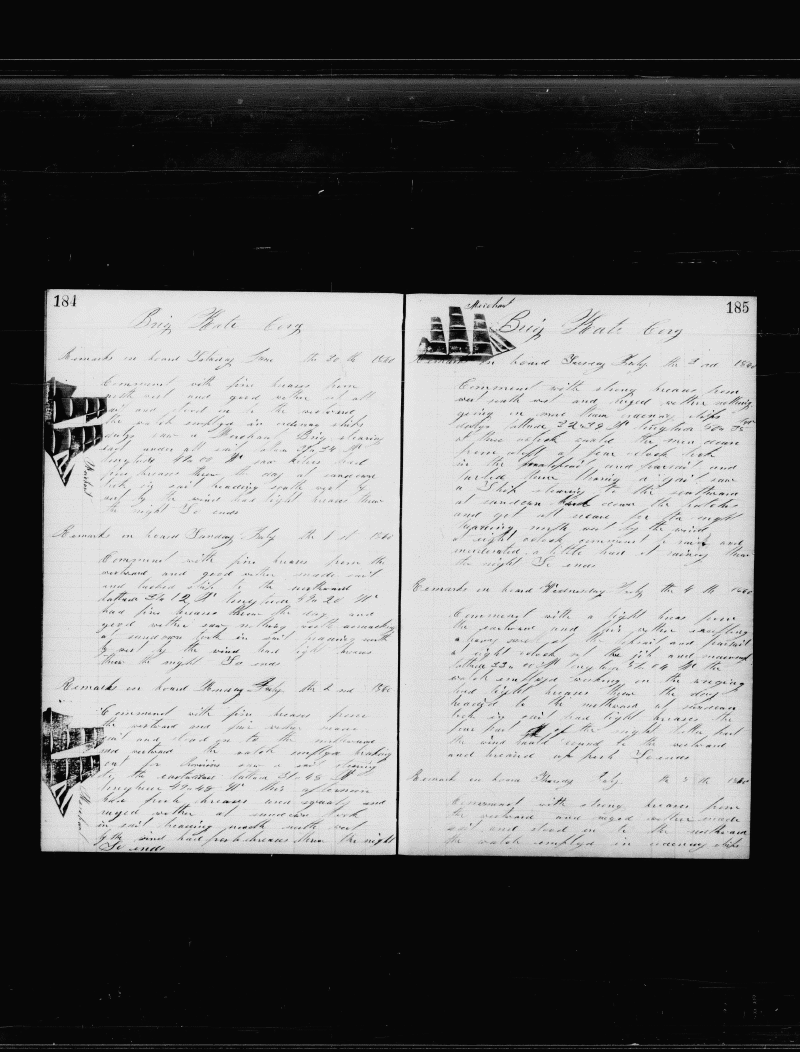 184
Brig Kate Cory
Remarks on board Saturday June the 30 th 1860
Commenced with fine breases from
north west and good wether set all
sail and stood on to the westward
the watch employd in ordenary ships
dutys saw a Merchant Brig stearing
east under all sail
longitude W
fine breases threw the day at sundown
took in sail heading south west by
west by the wind had light breases threw
the night So ends
Merchant
Remarks on board Sunday July the 1 st 1860
Commenced with fine breases from the
westward and good wether made sail
and tacked ship to the northward
lattude 31=12 N longitude 49=20 W
had fine breases threw the day and
good wether saw nothing worth
at sundown took in sail heading north
by west by the wind had light breases
threw the night So ends
Remarks on board Monday July the 2 nd 1860
Commenced with fine breases from
the westward and fair wether made
sail and stood on to the northward
and westward the watch employd
out for saw a sail stearing
to the eastward lattude 31=48 N
longitude 49=48 W this afternoon
have fresh breases and squaly and
ruged wether at sundown took
in sail heading north north west
by the wind had fresh breases threw the night
So ends
Merchant
185
Merchant
Brig Kate Cory
Remarks on board Tuesday July the 3 rd 1860
Commenced with strong breases from
west south west and ruged wether nothing
going on more than ordenary ships
dutys lattude 32=39 N longitude W
at three oclock called the men down
from aloft at four oclock took
in the foretopsail and foresail and
furled them saw
a Ship stearing to the southward
at sundown down the hatches
and got all secure for the night
heading north west by the wind
at eight oclock commenced to rain and
moderated a little had it raining threw
the night So ends
Remarks on board Wednesday July the 4 th 1860
Commenced with a light breas from
the eastward and fair wether excepting
a heavy swell set the topsail and foresail
at eight oclock set the jib and mainsail
lattude 33=00 N longitude W the
watch employd working on the riging
had light breases threw the day
headed to the northward at sundown
took in sail had light breases the
fore part of the night latter part
the wind hauld round to the westward
and breased up fresh So ends
Remarks on board Thursday July the 5 th 1860
Commenced with strong breases from
the westward and ruged wether made
sail and stood on to the northward
the watch employd in ordenary ships